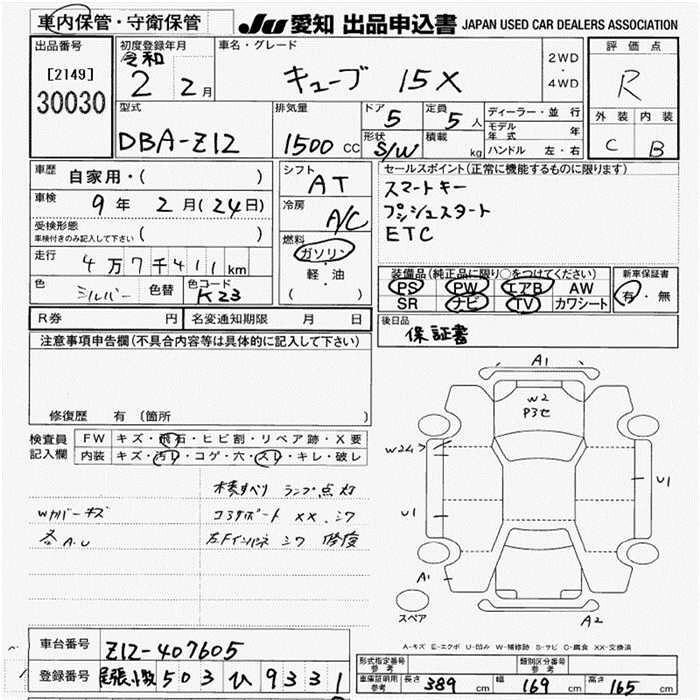 車内保管・守衛保管
JU 愛知 出品申込書 JAPAN USED CAR DEALERS ASSOCIATION
出品番号
[2149]
30030
初度登録年月
令和
2 2月
車名・グレード
キューブ 15X
2WD
・
4WD
評価点
R
外装 内装
C B
型式
DBA-Z12
排気量
1500 CC
ドア
5
形状
S/W
定員
5人
積載
kg
ディーラー・並行
モデル年式 年
ハンドル 左・右
車歴
自家用・( )
車検
9年 2月(24日)
受検形態
車検付きのみ記入して下さい ( )
走行
4万7千411km
色
シルバー
色替
色コード
K23
シフト
AT
冷房
A/C
燃料
ガソリン
・
軽・油
( )
セールスポイント(正常に機能するものに限ります)
スマートキー
プッシュスタート
ETC
装備品(純正品に限り○をつけてください)
PS PW エアB AW
SR ナビ TV カワシート
新車保証書
有・無
R券 円 名変通知期限 月 日
後日品
保証書
注意事項申告欄(不具合内容等は具体的に記入して下さい)
修復歴 有(箇所 )
検査員
記入欄
FW キズ・飛石・ヒビ割・リペア跡・X要
内装 キズ・汚れ・コゲ・穴・スレ・キレ・破レ
ランプ点灯
キズ
コアサポート XX.シワ
各A.U
シワ 修復
A1
W2
P3セ
W2
U1
U1
A1
A2
スペア
A-キズ E-エクボ U-凹み W-補修跡 S-サビ C-腐食 XX-交換済
車台番号
Z12-407605
登録番号
尾張小牧 503 ひ 9331
形式指定番号
参考
類別区分番号
参考
車庫証明用
参考
長さ 389 cm 幅 169 cm 高さ 165 cm